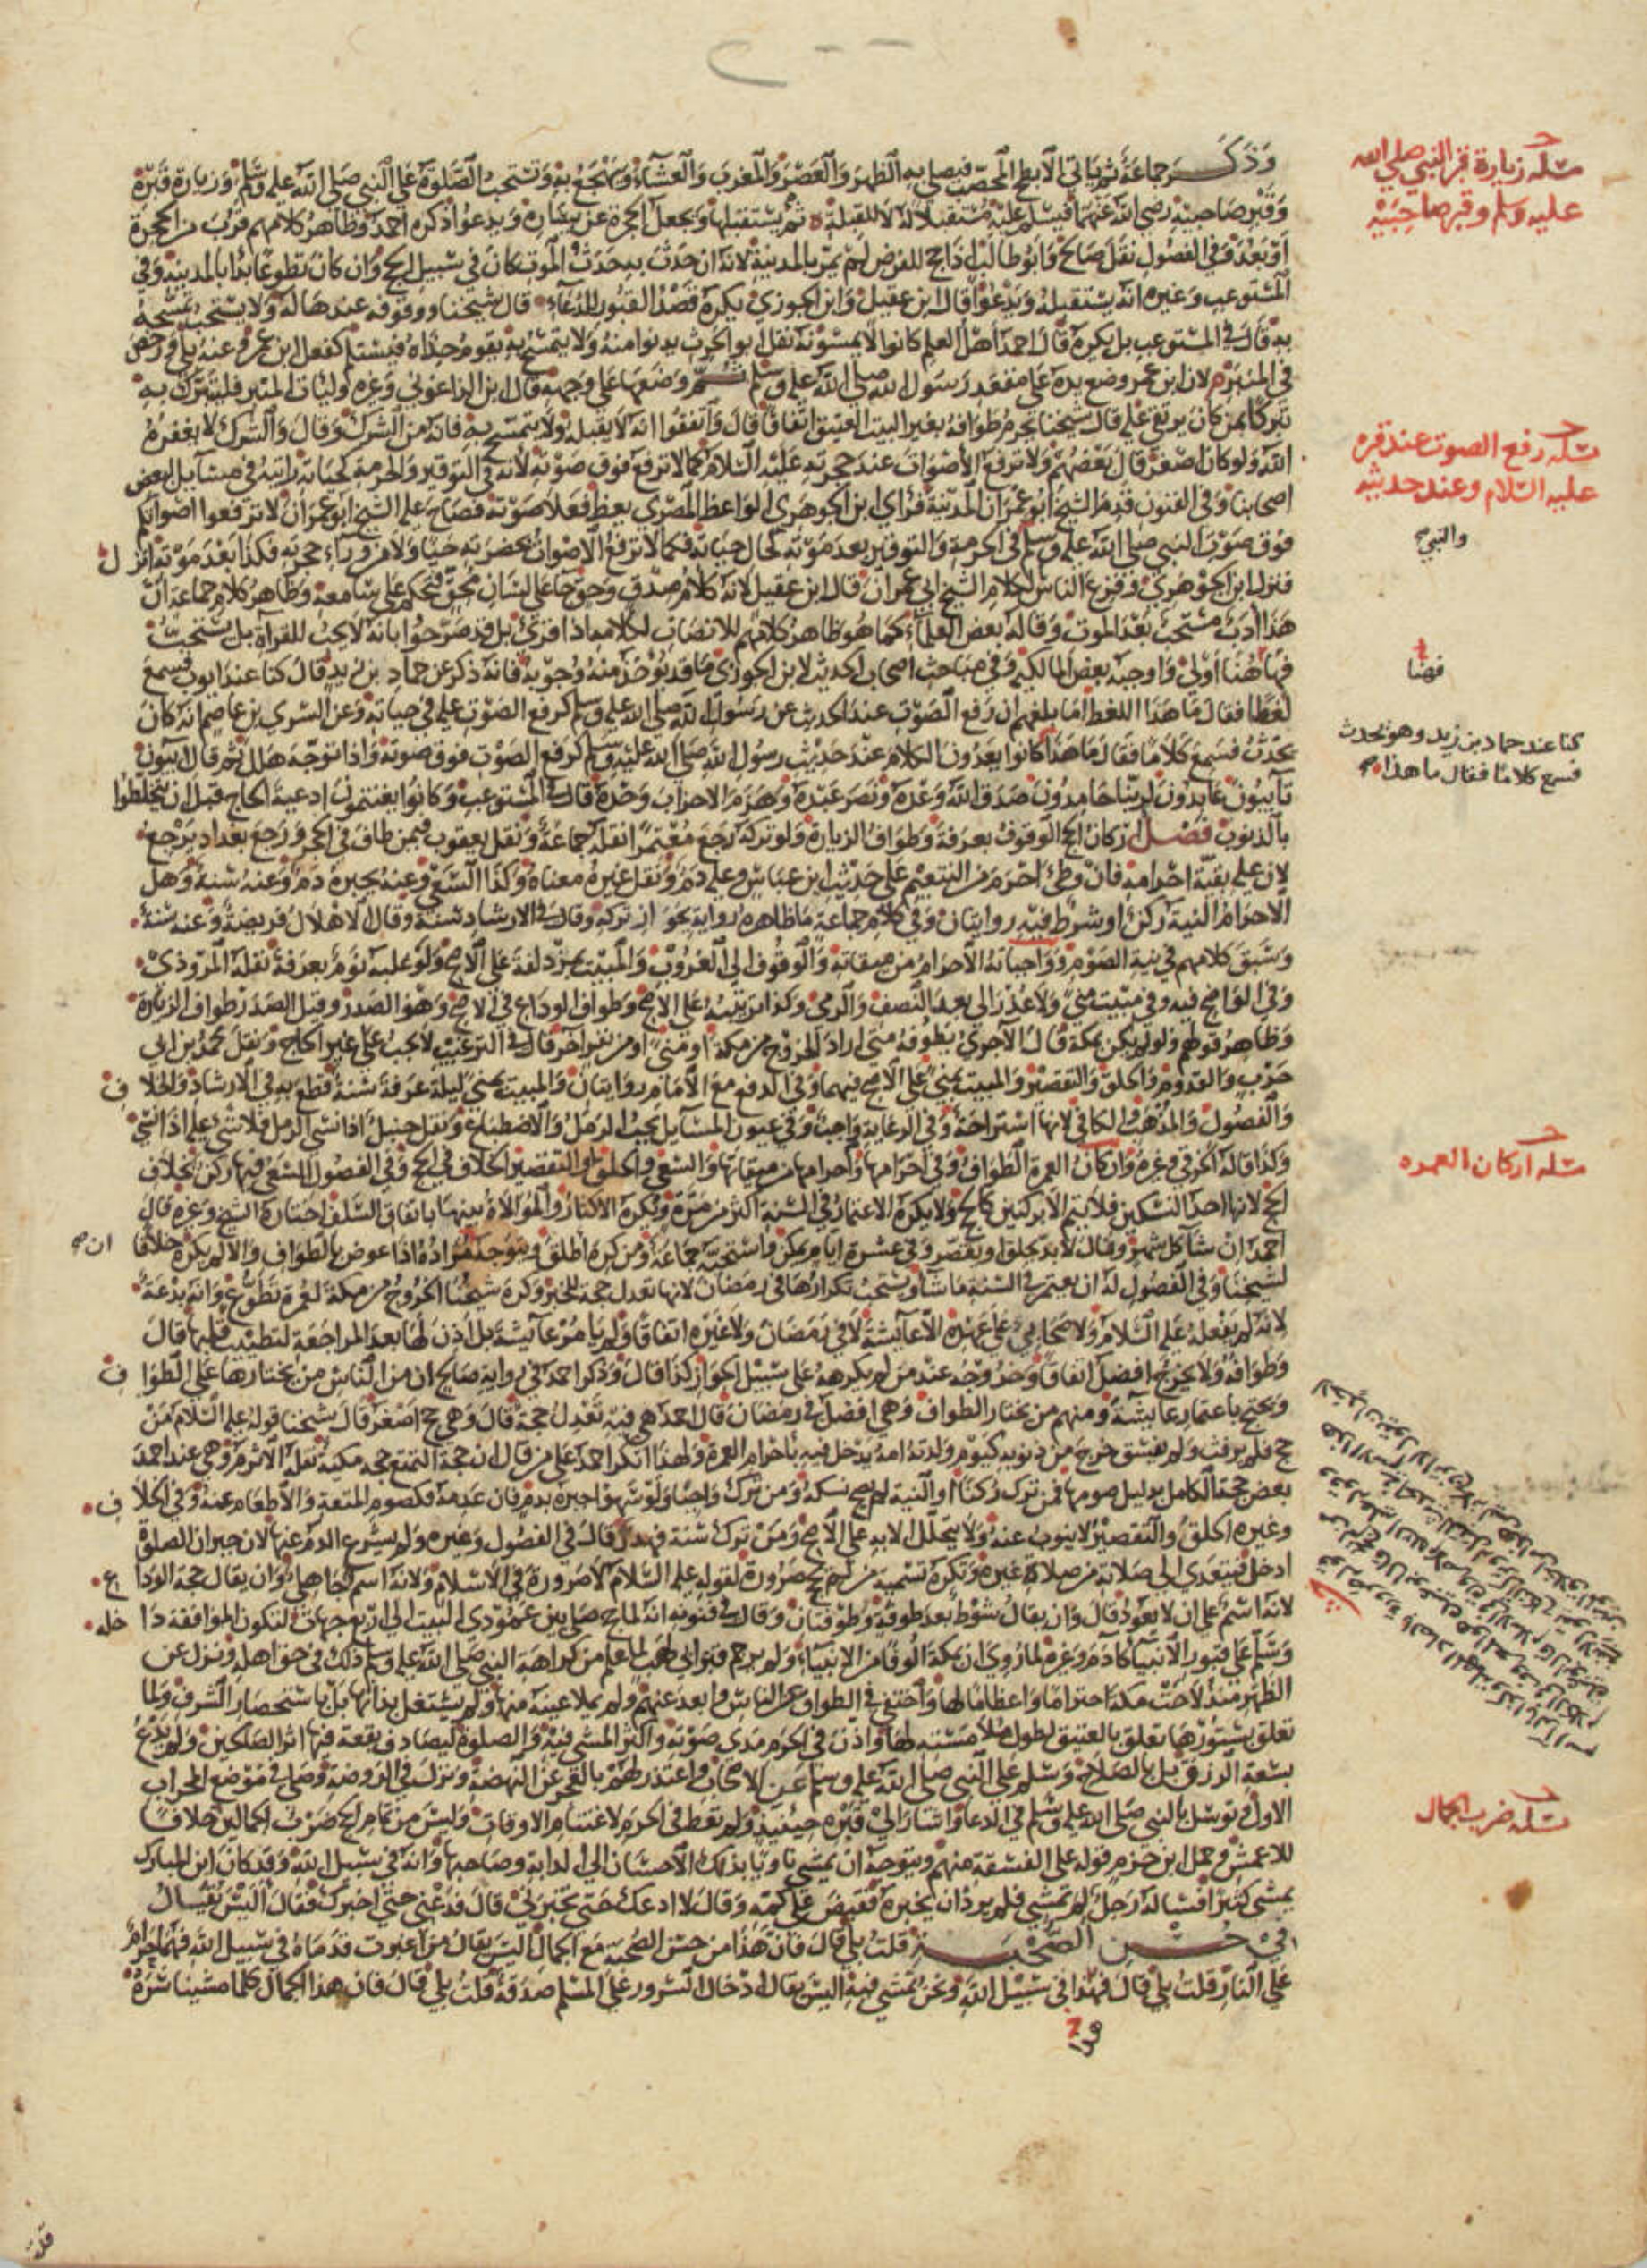 وَذَكَرَ جماعَة ثم يَاتي الأبطح المحصّب فيصلي به الظهرَ وَالعَصْرَ وَالمغربَ وَالعشآءَ وَيهجع به وَتستحب الصّلوة عَلَى النبي صَلى الله عليه وسَلم وَزيارة قبره
وَقبْر صَاحبَيْه رضي الله عنهما فيسَلم عليْه مُستقبلا له لا للقبلة ثم يستقبلها وَيجعل الحجرة عن يسَاره وَيدعو اذكره احمد وظاهر كلامهم قرب من الحجرة
أوْ بَعُدَ وَفي الفصُول نقل صَالح وَابُو طالب اذا حج للفرض لم يمرّ بالمدينة لانه ان حَدث به حَدَث الموت كان في سَبيل الحج وَان كان تطوعًا بدا بالمدينة وَفي
المستوعب وَغيره انه يستقبله وَيدعُو قال ابن عقيل وَابن الجوزي يكره قصْد القبُور للدعَآء قال شيخنا ووقوفه عندهَا له وَلا يستحب تمسّحه
به قال في المستوعب بل يكره قال احمد اهْل العلم كانوا لا يمسّونه نقل ابو الحرث يدنوا منه وَلا يتمسّح به يقوم حِذاه فيسَلم كفعل ابن عمر وعنه بلى وَرخص
في المنبر لان ابن عمر وضع يده عَلى مقعد رَسُول الله صلى الله عليه وسلم ثم وَضعَها عَلى وَجهه قال ابن الزاغوني وَغيره وليات المنبر فليتبرّك به
تبركا بمن كان يرتقي عليه قال شيخنا يحرم طوافه بغير البيت العتيق اتفاقا قالَ وَاتفقوا انه لا يقبله وَلا يتمسّح به فانه من الشرك وقال وَالشرك لا يغفره
الله وَلو كان اصْغر قال بَعْضهم وَلا ترفع الأصْوات عند حجرته عَليْه السّلام كما لا ترفع فوق صَوْته لانه في التوقير وَالحرمة كحيَاته رايته في مسَآيل لبعض
اصحابنا وَفي الفنون قدم الشيخ أبو عِمْرَان المدينة فرَاى ابن الجوهري الوَاعظ المصْري يعظ فعلا صَوْته فصَاح عليه الشيخ ابو عمرَان لا ترفعوا اصْواتكم
فوق صَوْت النبي صلى الله عليه وسلم في الحرمة وَالتوقير بعد مَوْته كحال حيَاته فكما لا ترفع الأصْوات بحضرته حَيًّا وَلا من ورَآء حجرته فكذا بَعْد مَوْته انزل
فنزل ابن الجوْهري وَفزع الناس لكلام الشيخ ابي عمران قال ابن عقيل لانه كلام صدْق وَحق جَا عَلى لسَان محق فتحكم عَلى سَامعه وَظاهر كلام جماعَة أنّ
هَذا أدَب مُستحب بَعْد الموت وَقاله بعض العلمآء كما هو ظاهر كلامهم للانصَات لكلامه اذا قرئ بل قد صَرّحوا بانه لا يجب للقرآة بل يستحبّ
فههُنا اَوْلى وَاوجبه بعض المالكية وَفي مبَاحث اصحاب الحديث لابن الجوزي مَا قد يؤخذ منه وُجوبه فانه ذكر عن حماد بن زيد قال كنا عند ايوب فسمعَ
لغطًا فقال مَا هَذا اللغط امَا بلغهم ان رَفع الصَوْت عند الحديث عن رسُول الله صلى الله عليه وسلم كرفع الصَوْت عليه في حيَاته وَعن السّري بن عاصم انه كان
يحدّث فسَمِعَ كَلامًا فقال مَا هَذا كانوا يعدّون الكلام عندَ حَديْث رسُول الله صَلى الله عليْه وسلم كرفع الصَوْت فوق صَوْته وَاذا توجّه هَلل ثم قال آيبُون
تآيبُون عَابدُون لرَبّنا حَامدُون صَدَق الله وَعْدَه وَنصَر عَبْده وَهَزمَ الاحزابَ وَحْدَه قال في المستوعب وَكانوا يغتنمون ادعيةَ الحاج قبل ان يتلطخوا
بالذنوب فَصْل ارْكان الحج الوقوف بعرَفة وَطوَاف الزيارة وَلو تركه رَجَع مُعْتمرًا نقله جماعَة وَنقل يعقوب فيمن طاف في الحجر وَرجَع بغداد يرْجع
لانه على بقيّة احْرامه فان وطئ احْرَم من التنعيم عَلى حَديْث ابن عباس وَعليه دَم وَنقل غيْره معناه وَكذا السّعي وَعنه يجبره دَم وَعنه سُنة وَهل
الاحرام النيّة ركن او شرط فيْه روايتان وَفي كلام جماعَة مَا ظاهره رواية يجوز تركه وقال في الارشاد سُنة وقال الاهْلال فريضة وَعنه سُنة
وَسَبق كلامهم في نية الصَوْم وَوَاجباته الأحرام من ميقاته وَالوقوف الى الغروب وَالمبيْت بمزدلفة عَلى الأصح وَلو غلبه نوْم بعرفة نقله المرّوذي
وَفي الوَاضح فيه وَفي مَبيْت مِنى وَلا عُذر الى بعد النّصف وَالرمي وَكذا ترتيبه عَلى الاصح وَطوَاف الوداع في الاصح وَهْو الصَدر وقيل الصَدر طواف الزيارة
وَظاهر قولهم وَلو لم يكن بمكة قال الآجري يَطوفه متى ارَاد الخرُوج من مكة او مِنى او من نفر اخر قال في الترغيْب لا يجب عَلى غير الحاج وَنقل محمد بن ابي
حَرْب وَالقدوم وَالحلق وَالتقصيْر وَالمبيت بمنى عَلى الأصح فيهما وَفي الدفع مَع الإمَام روايتان وَالمبيت بمنى ليلة عرفة سُنة قطع به في الارشاد وَالخلاف
وَالفصُول وَالمذهب وَالكافي لانها اسْتراحة وَفي الرعَاية وَاجب وَفي عيون المسَآيل يجب الرمَل وَالاضطباع وَنقل حنبل اذا نسي الرمل فلا شيء عليه اذا نسي
وَكذا قاله الخرقي وَغيره وَاركان العمرة الطوَاف وَفي احْرَامها وَاحرامها من ميقاتها وَالسّعي وَالحلق او التقصير الخلاف في الحج وَفي الفصول السّعي فيها ركن بخلاف
الحج لانها احد النسكين فلا يتم الا بركنين كالحج وَلا يكره الاعتمار في السّنة اكثر من مرّة وَيكره الاكثار وَالموالاة بينها باتفاق السّلف اختاره الشيخ وَغيره قال
احمد ان شآ كل شهر وقال لابد يحلق او يقصّر وَفي عشرة ايام يمكن وَاستحبّه جماعَة وَمن كره اطلق ويتوجّه مراده اذا عوض بالطواف وَالا لم يكره خلافا
لشيخنا وَفي الفصول له ان يعتمر في السّنة مَا شآ وَيستحب تكرارهَا في رمَضان لانها تعدل حجة للخبر وَكره شيخنا الخروج من مكة لعمرة تطوع وَانه بدْعَة
لانه لم يفعله عليه السّلام وَلا صَحابي عَلى عهْده الا عآيشة لا في رمَضان وَلا غيْره اتفاقا وَلم يامرْ عآيشة بل اذن لها بعد المراجَعة لتطييب قلبها قال
وَطوَافه وَلا يخرج افضل اتفاقا وَخرُوجه عند من لم يكرهه عَلى سَبيْل الجواز كذا قال وَذكر احمد في رواية صَالح ان من الناس من يختارهَا عَلى الطوَاف
وَيحتج باعتمار عآيشة وَمنهم من يختار الطواف وَهي افضل في رمَضان قال احمد هي فيه تعْدل حجة قال وَهي حج اصْغر قال شيخنا قوله عليه السّلام مَنْ
حج فلم يرفث وَلم يفسق خرج من ذنوبه كيوم وَلدته امه يدخل فيه باحرام العمرة وَلهذا انكر احمد عَلى من قال ان حجة التمتع حجة مكية نقله الاثرم وَهي عند احمد
بعض حجة الكامل بدليل صومها فمن ترك ركنا او النية لم يصح نسكه وَمن ترك وَاجبا وَلو سَهوًا جبره بدم فان عدمه فكصوم المتعة وَالاطعام عنه وَفي الخلاف
وغيره الحلق وَالتقصيْر لا ينوب عنه وَلا يتحلل الا به على الاصح وَمَن ترك سُنة فهدر قال في الفصول وَغيره وَلم يشرع الدم عنها لان جبران الصلاة
ادخل فيتعدى الى صَلاته من صلاة غيره وَتكره تسْمية من لم يحج صَرُورة لقوله عليه السّلام لا صَرورة في الاسْلام وَلانه اسم جَاهلي وَان يقال حجة الودَاع
لانه اسْم عَلى ان لا يعُود قال وَان يقال شوْط بعد طوفة وَطوْفتان وَقال في فنونه انه لما حج صَلى بين عمُوْدي البيت الى اربع جهات لتكون الموافقة داخله
وَسَلم عَلى قبور الأنبيَآ كآدَم وَغيره لما رُوي ان بمكة الوفا من الانبيَآء وَلم يرجم قبر ابي لهب لما علم من كراهة النبي صَلى الله عليه وسلم ذلك في حق اهله وَنزل عن
الظهْر منذ لاحَت مكة احترامًا وَاعظامًا لها وَاختفى في الطوَاف عن الناس وَابعد عنهم وَلم يملا عينه منها وَلم يشتغل بذاتها بل باستحضار الشرف وَلما
تعلق بستورهَا تعلق بالعتيق لطول مُلامَسته لها وَاذّن في الحرم مدى صَوْته وَاكثر المشي فيه وَالصلوة ليصَادف بقعة فيها اثر الصَالحين وَلم يدْعُ
بسَعة الرّزق بل بالصَلاح وَسلم عَلى النبي صَلى الله عليه وسلم عن الاصحاب وَاعتذر لهم بالعجز عن النهضة وَنزل في الروضة وَصلى في موضع المحراب
الاول وَتوسّل بالنبي صَلى الله عليه وسلم في الدعا وَاشارَ الى قبره حينئذ وَلم يعظ في الحرم لاغتنام الاوقات وَليسَ من تمام الحج ضرب الجمالين خلافًا
للاعمش وَحمل ابن حزم قوله على الفسقة منهم وَيتوجه ان يمشي ناويًا بذلك الاحسان الى الدابة وصَاحبها وَانه في سبيل الله وَقد كان ابن المبارك
يمشي كثيرًا فسَاله رَجل لم تمشي فلم يرد ان يخبره فقبض على كمّه وَقال لا ادعك حَتى تخبرني قال فدَعْني حتى اخبرك فقال اليْسَ يُقال
في حُسْن الصُّحْبَة قلت بلى قال فان هَذا من حسْن الصُحبة مَع الجمال اليسَ يقال من اغبرت قدمَاه في سبيل الله فهما حرام
عَلى النار قلت بلى قال فهذا في سَبيْل الله وَنحن نمشي فيه اليسَ يقال ادخال السّرور على المسْلم صَدقة قلت بلى قال فان هذا الجمال كلما مشينا سَرّه
مسْئلة زيارة قبر النبي صلى الله
عليه وسلم وقبر صاحبَيْه
مسئلة رفع الصوت عند قبره
عليه السّلام وعند حديثه
والنبي
كنا عند حماد بن زيد وهو يحدث
فسمع كلامًا فقال ما هذا
ان
مسئلة اركان العمره
مسئلة ضرب الجمال